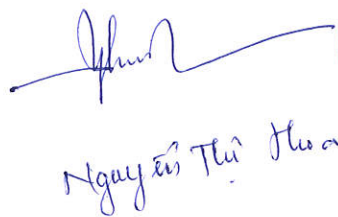 Nguyễn Thị Hoa